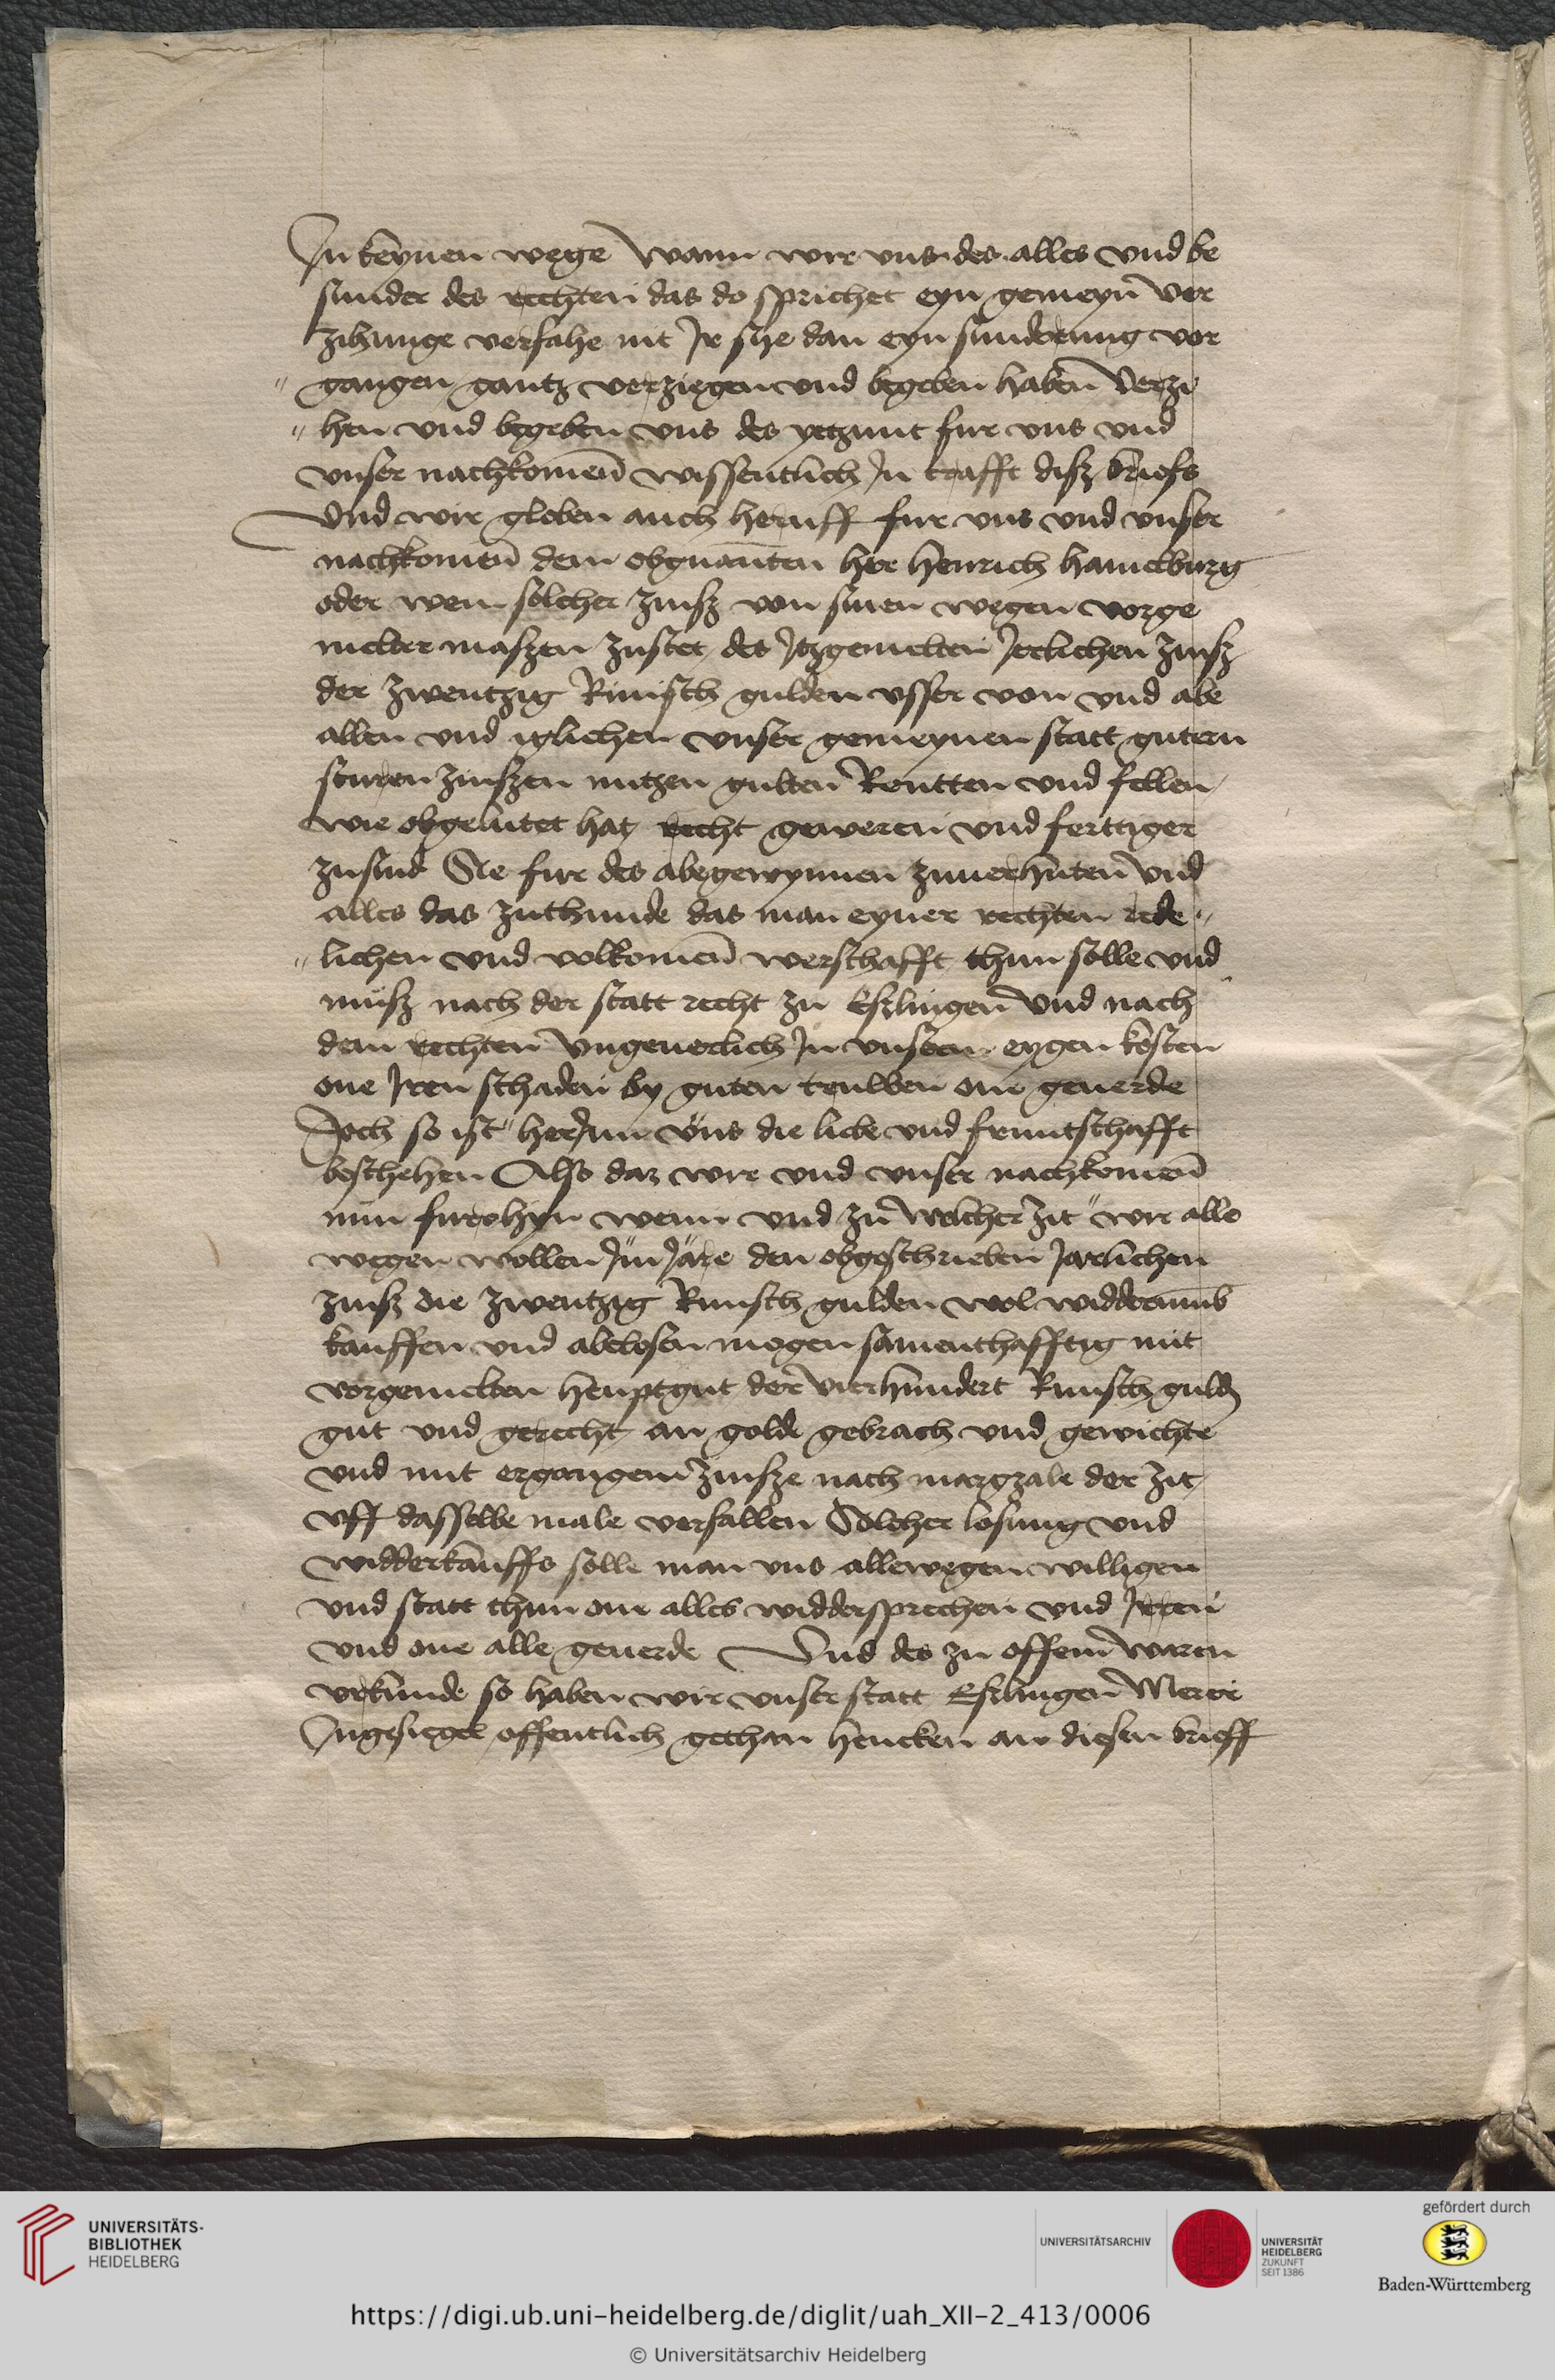 In keynen wege Wann wir vns des alles vnd be
sunder des rechten das do sprichet eyn gemeyn ver
zihunge verfahe nit Ir sye dan eyn sunderung vor
gangen gantz verziegen vnd begeben haben Verzi
hen vnd begeben vns des yetzunt fur vns vnd
vnser nachkomen wissentlich In crafft disz briefs
Vnd wir globen auch heruff fur vns vnd vnser
nachkomen dem obgnanten her Henrich hamelburg
oder wem solcher zinsz von sinen wegen vorge
melter maszen zustet des Itzgemelten Jerlichen zinsz
der zwentzig Rinisch gulden vsser von vnd abe
allen vnd iglichen vnser gemeynen statt gutern
sturen zinszen nutzen gulten Rentten vnd fellen
wie obgelutet hat recht geweren vnd ferttiger
zusind Sie fur des abegewynnen zuuerhuten vnd
alles das zuthunde das man eyner rechten rede
lichen vnd volkomen werschafft thun solle vnd
musz nach der statt recht zu Eszlingen vnd nach
dem rechten vngeuerlich In vnsern eygen kosten
one Iren schaden by guten truwen one geuerde
Doch so ist herInn vns die liebe vnd fruntschafft
beschehen Also daz wir vnd vnser nachkomen
nun furohyn wenn vnd zu welcher zit wir alle
wegen wollen Im Jare den obgeschrieben Jarlichen
zinsz die zwentzig Rinisch gulden wol widderumb
kauffen vnd abelosen mogen samenthafftig mit
vorgemelten heuptgut der vierhundert Rinisch guld
gut vnd gerecht an golde gebrach vnd gewichte
vnd mit ergangem zinsze nach margzale der zit
vff dasselbe male verfallen Solcher losung vnd
widderkauffs solle man vns allewegen willigen
vnd statt thun one alles widdersprechen vnd Irren
vnd one alle geuerde Vnd des zu offem waren
vrkunde so haben wir vnser statt Eszlingen Merer
Ingesiegel offentlich gethan hencken an diesen brieff
UNIVERSITÄTS-
BIBLIOTHEK
HEIDELBERG
UNIVERSITÄTSARCHIV
UNIVERSITÄT
HEIDELBERG
ZUKUNFT
SEIT 1386
gefördert durch
Baden-Württemberg
https://digi.ub.uni-heidelberg.de/diglit/uah_XII-2_413/0006
© Universitätsarchiv Heidelberg